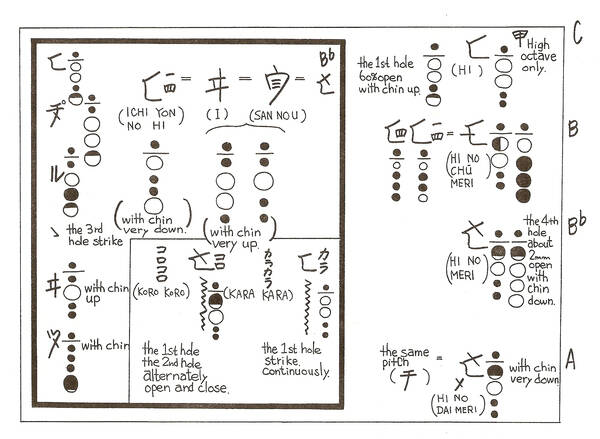 ヒ
チ
ル
ヽ the 3rd
hole strike
ヰ
with chin
up
ツ
with chin
ヒ 一四 = ヰ =
=
Bb
(ICHI YON)
NO HI
(I)
(SAN NOU)
with chin
very down.
with chin
very up.
コロコロ
(KORO KORO)
コロ
the 1st hole
the 2nd hole
alternately
open and close.
カラカラ
(KARA KARA)
ヒ カラ
the 1st hole
strike
continuously.
the 1st hole
60% open
with chin up.
ヒ
(HI)
甲
High
octave
only.
C
=
(HI NO
CHŪ
MERI)
B
(HI NO
MERI)
the 4th
hole
about
2mm
open
with
chin
down.
Bb
the same
pitch
(チ)
=
(HI NO
DAI MERI)
with chin
very down
A